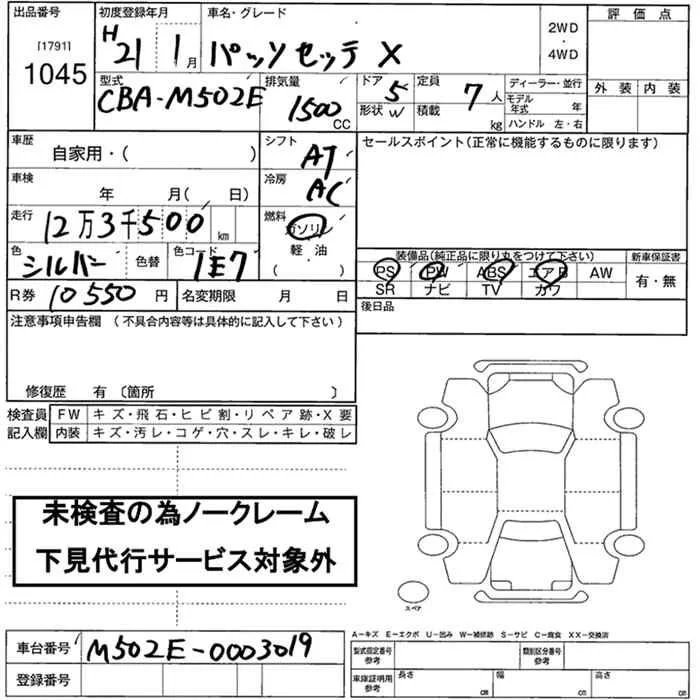 出品番号 初度登録年月 車名・グレード 評価点
[1791] 1045 H21 1月 パッソセッテ X 2WD・4WD
外装 内装
型式 CBA-M502E 排気量 1500 CC ドア 5 形状 W 定員 7人 積載 kg ディーラー・並行 モデル年式 年 ハンドル 左・右
車歴 自家用・( ) シフト AT セールスポイント(正常に機能するものに限ります)
車検 年 月( 日) 冷房 AC
走行 12万3千500 km 燃料 ガソリン 軽・油 ( )
色 シルバー 色替 色コード 1E7
装備品(純正品に限り丸をつけて下さい) 新車保証書
PS PW ABS エアB AW 有・無
SR ナビ TV カワ
R券 10550 円 名変期限 月 日 後日品
注意事項申告欄 (不具合内容等は具体的に記入して下さい)
修復歴 有 〔箇所 〕
検査員 FW キズ・飛石・ヒビ割・リペア跡・X要
記入欄 内装 キズ・汚レ・コゲ・穴・スレ・キレ・破レ
未検査の為ノークレーム
下見代行サービス対象外
スペア
A-キズ E-エクボ U-凹み W-補修跡 S-サビ C-腐食 XX-交換済
車台番号 M502E-0003019 型式指定番号 参考 類別区分番号 参考
登録番号 車庫証明用 参考 長さ cm 幅 cm 高さ cm